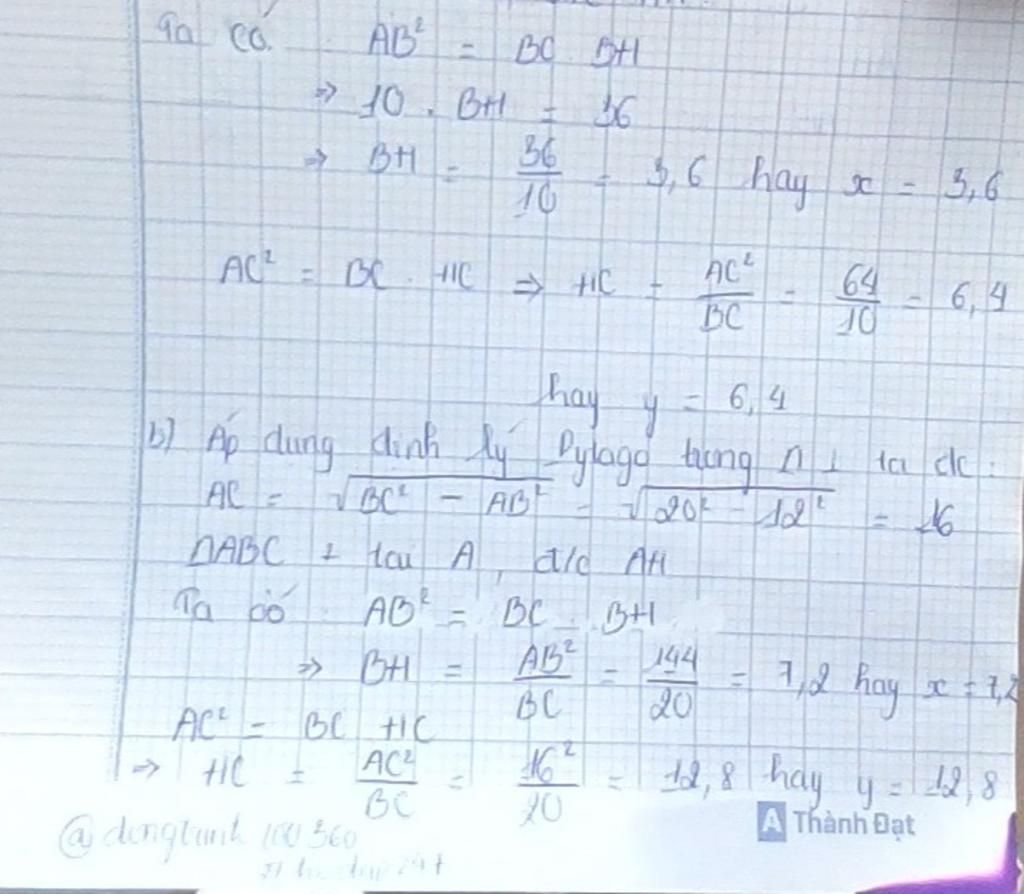 Ta có AB² = BC . BH
⇒ 10 . BH = 36
⇒ BH = 36/10 = 3,6 hay x = 3,6
AC² = BC . HC ⇒ HC = AC²/BC = 64/10 = 6,4
hay y = 6,4
b) Áp dung dinh lý Pytago trong Δ ⊥ ta dc :
AC = √(BC² - AB²) = √(20² - 12²) = 16
ΔABC ⊥ tai A, đ/c AH
Ta có AB² = BC . BH
⇒ BH = AB²/BC = 144/20 = 7,2 hay x = 7,2
AC² = BC HC
⇒ HC = AC²/BC = 16²/20 = 12,8 hay y = 12,8
A Thành Đạt